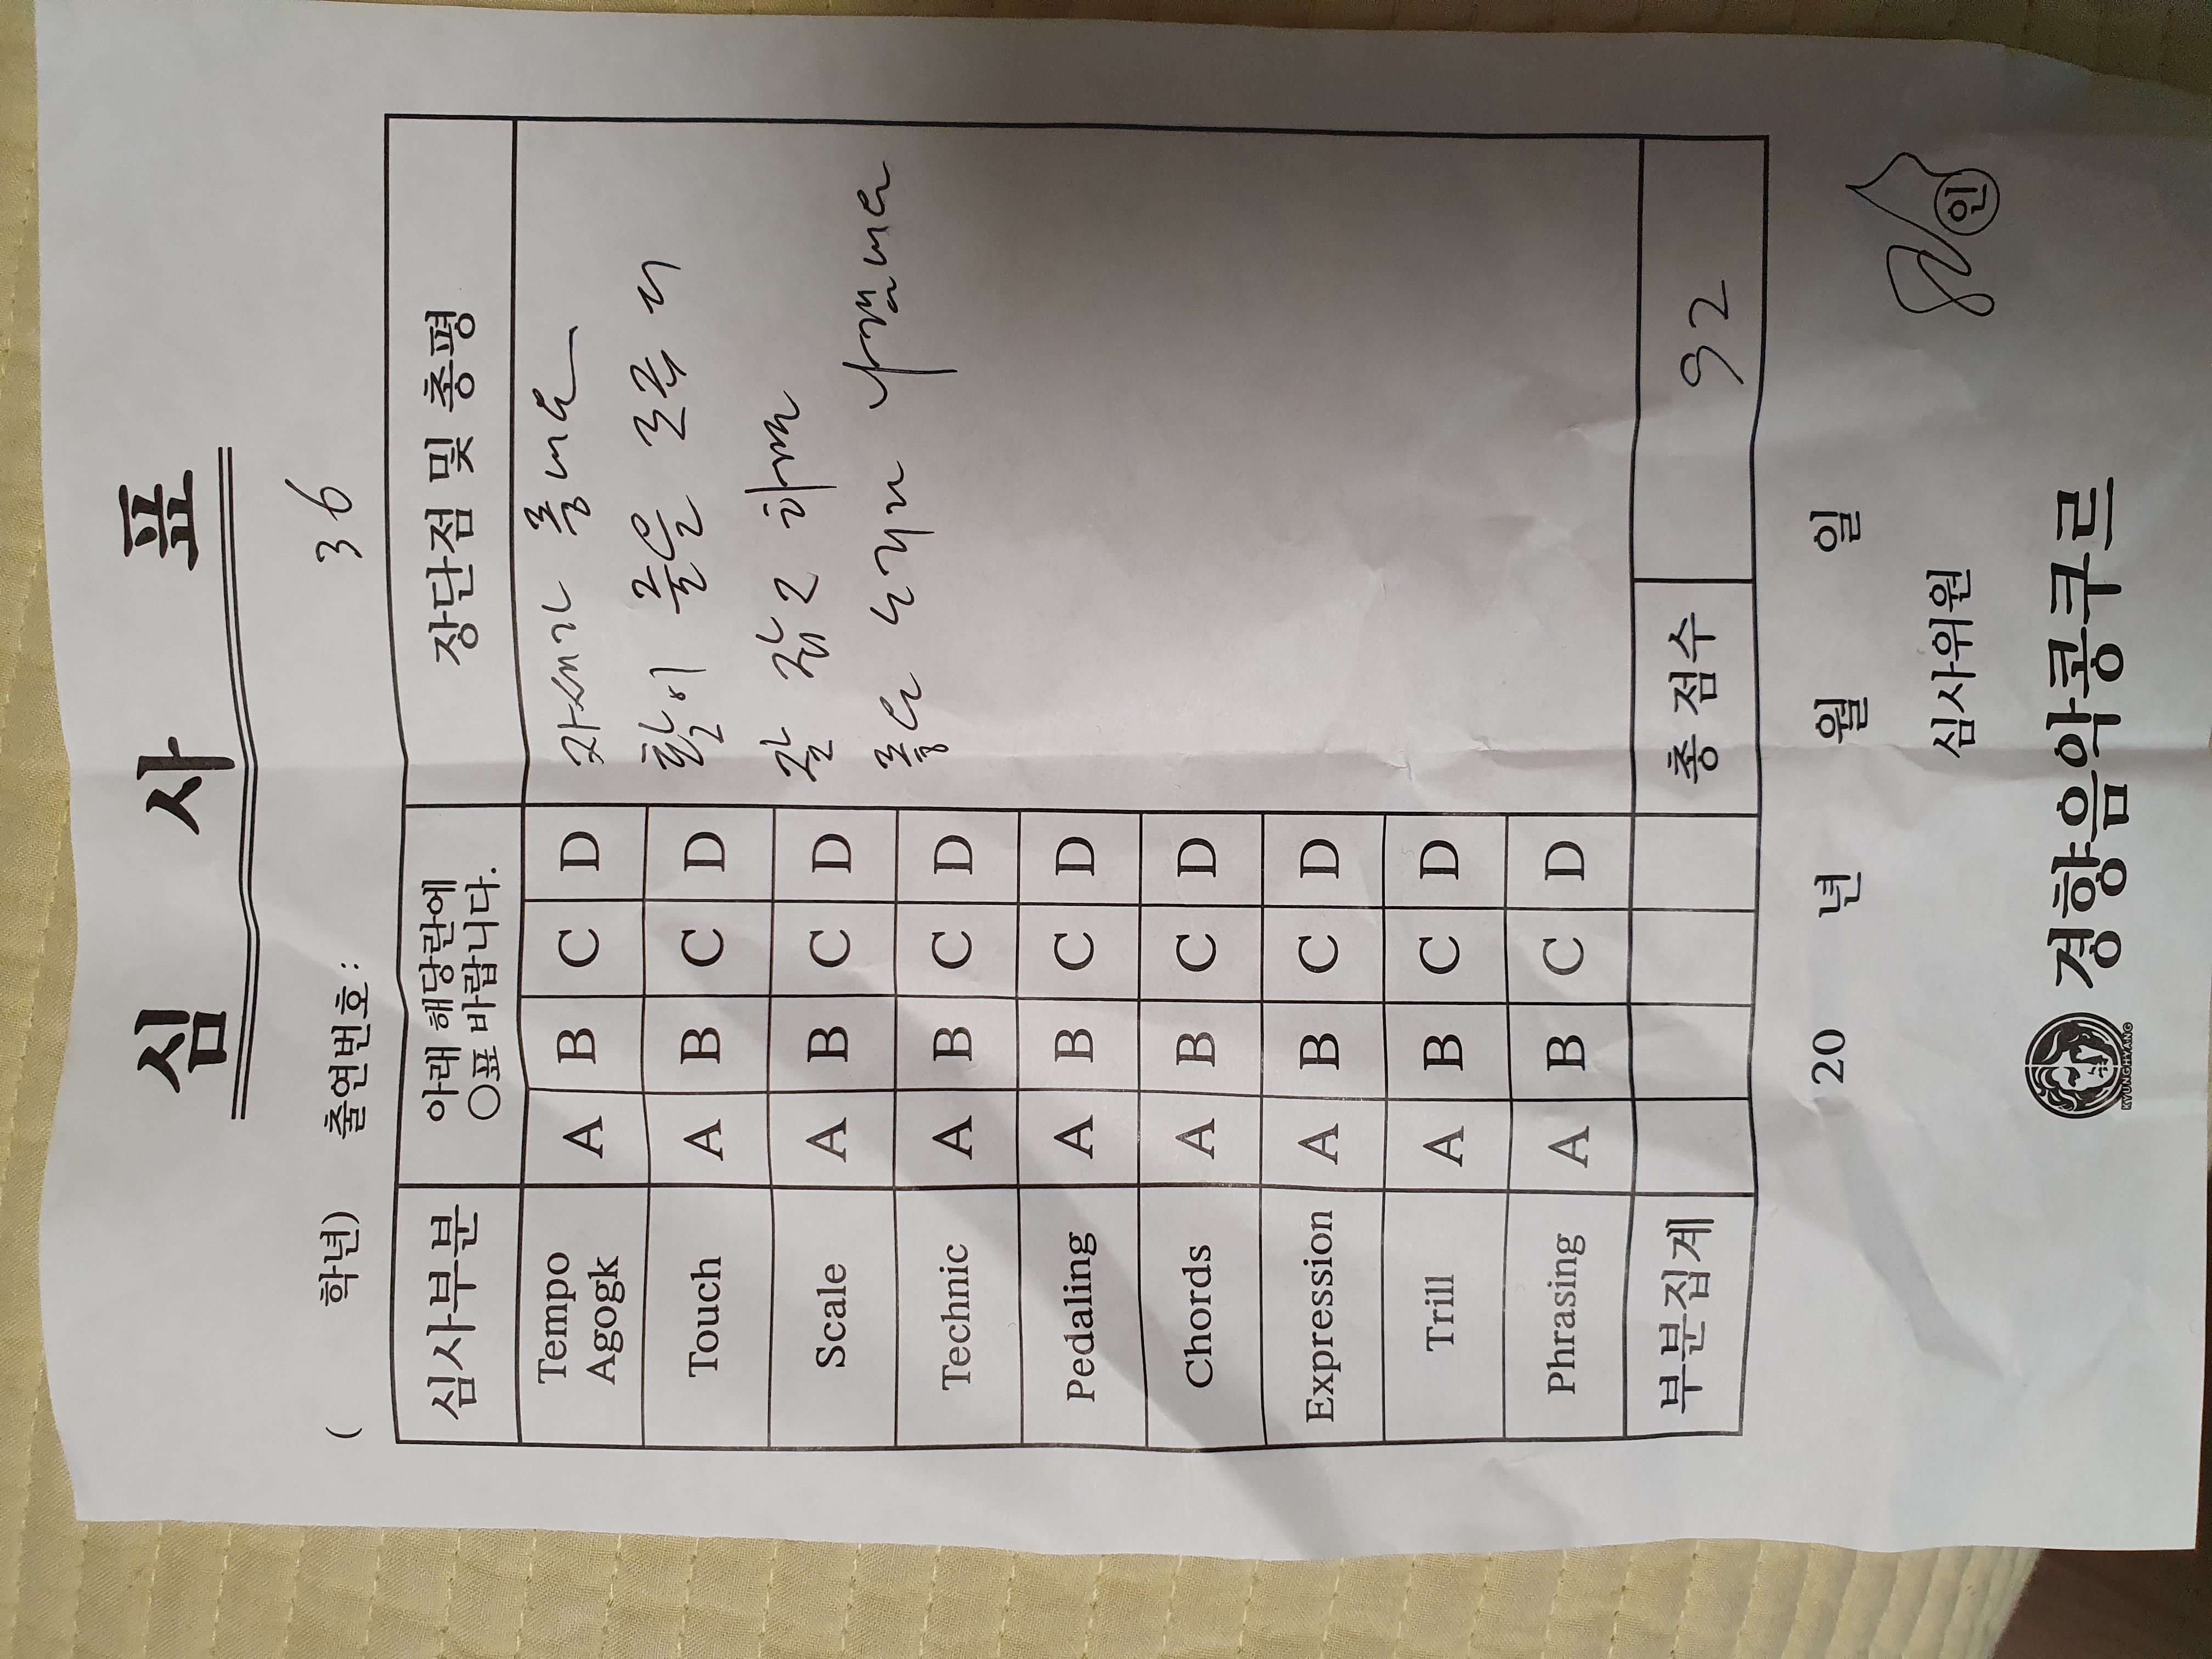 심 사 표
( 학년) 출연번호 : 36
심사부분 아래 해당란에 장단점 및 총평
○표 바랍니다.
Tempo Agogk A B C D 자세가 좋네요
Touch A B C D 활이 줄을 조금 더
Scale A B C D 잘 잡고 하면
Technic A B C D 좋은 소리가 나겠네요
Pedaling A B C D
Chords A B C D
Expression A B C D
Trill A B C D
Phrasing A B C D
부분집계 총 점수 92
20 년 월 일
심사위원 인
KYUNGHYANG 경향음악콩쿠르